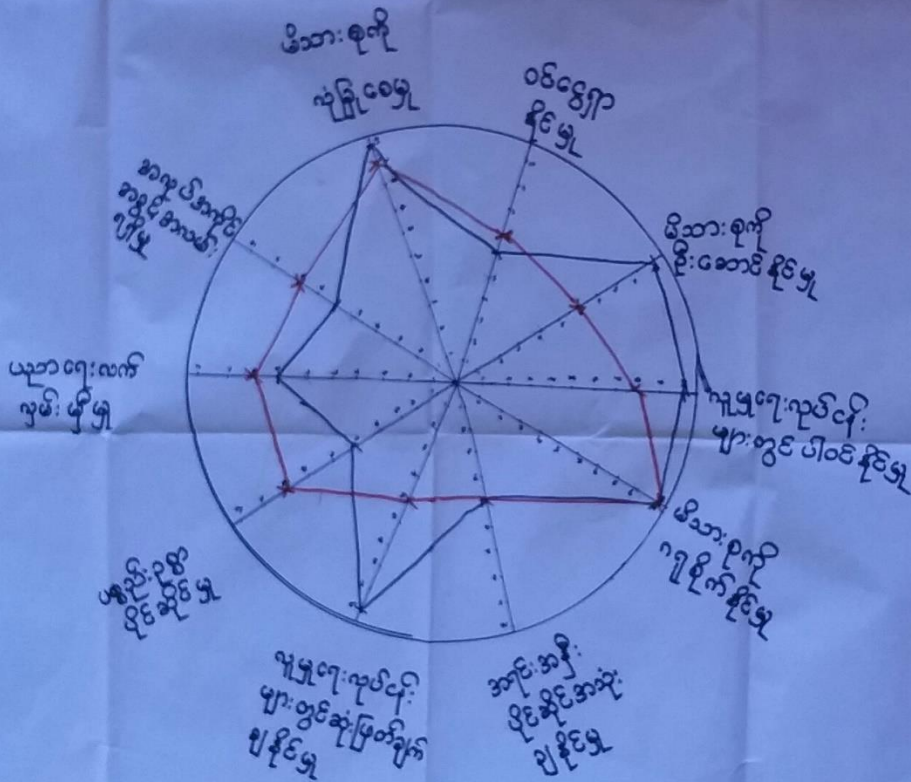 မိသားစုကို
လုံခြုံစေမှု
ဝင်ငွေရှာ
နိုင်မှု
မိသားစုကို
ဦးဆောင်နိုင်မှု
လူမှုရေးလုပ်ငန်း
များတွင် ပါဝင်နိုင်မှု
မိသားစုကို
ဂရုစိုက်နိုင်မှု
အရင်းအနှီး
ပိုင်ဆိုင်အသုံး
ချနိုင်မှု
လူမှုရေးလုပ်ငန်း
များတွင်ဆုံးဖြတ်ချက်
ချနိုင်မှု
ပစ္စည်းဥစ္စာ
ပိုင်ဆိုင်မှု
ပညာရေးလက်
လှမ်းမှီမှု
အလုပ်အကိုင်
အခွင့်အလမ်း
ရရှိမှု